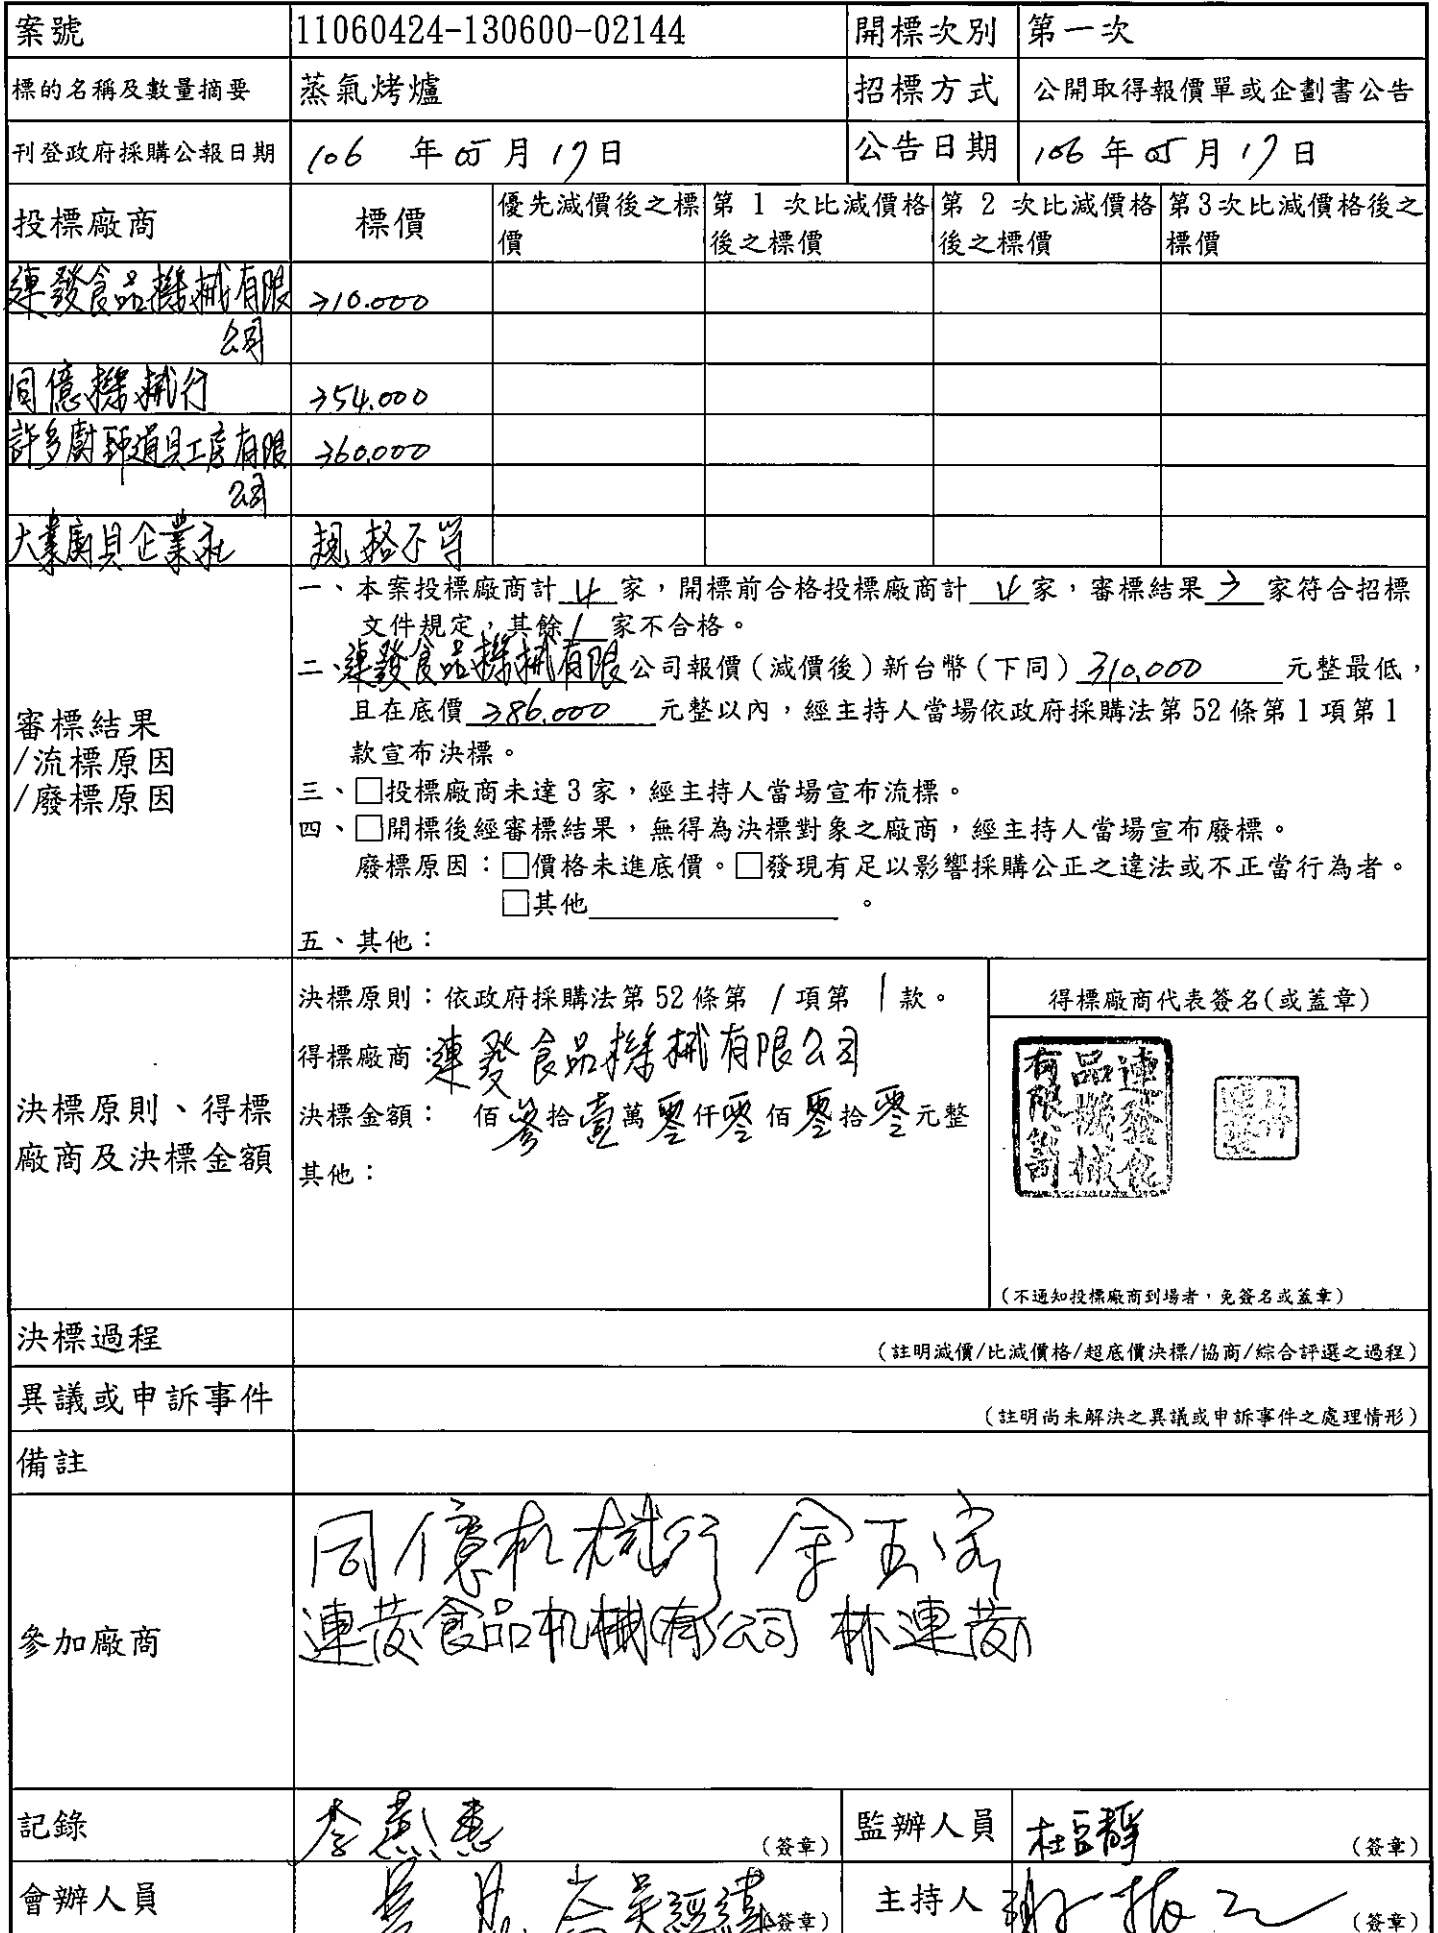 案號 11060424-130600-02144 開標次別 第一次
標的名稱及數量摘要 蒸氣烤爐 招標方式 公開取得報價單或企劃書公告
刊登政府採購公報日期 106 年 05 月 17 日 公告日期 106 年 05 月 17 日
投標廠商 標價 優先減價後之標價 第 1 次比減價格後之標價 第 2 次比減價格後之標價 第3次比減價格後之標價
連發食品機械有限公司 310.000
同億機械行 354.000
許多廚師道具工房有限公司 360.000
大業廚具企業社 規格不符
審標結果
/流標原因
/廢標原因
一、本案投標廠商計 4 家，開標前合格投標廠商計 4 家，審標結果 3 家符合招標
文件規定，其餘 1 家不合格。
二、連發食品機械有限公司報價(減價後)新台幣(下同) 310,000 元整最低，
且在底價 386,000 元整以內，經主持人當場依政府採購法第 52 條第 1 項第 1
款宣布決標。
三、□投標廠商未達 3 家，經主持人當場宣布流標。
四、□開標後經審標結果，無得為決標對象之廠商，經主持人當場宣布廢標。
廢標原因：□價格未進底價。□發現有足以影響採購公正之違法或不正當行為者。
□其他 。
五、其他：
決標原則、得標
廠商及決標金額
決標原則：依政府採購法第 52 條第 1 項第 1 款。
得標廠商：連發食品機械有限公司
決標金額： 佰參拾壹萬零仟零佰零拾零元整
其他：
得標廠商代表簽名(或蓋章)
連發食品機械有限公司
(不通知投標廠商到場者，免簽名或蓋章)
決標過程 (註明減價/比減價格/超底價決標/協商/綜合評選之過程)
異議或申訴事件 (註明尚未解決之異議或申訴事件之處理情形)
備註
參加廠商
同億机械行
連發食品机械(有)公司 林連發
記錄 (簽章) 監辦人員 (簽章)
會辦人員 (簽章) 主持人 (簽章)